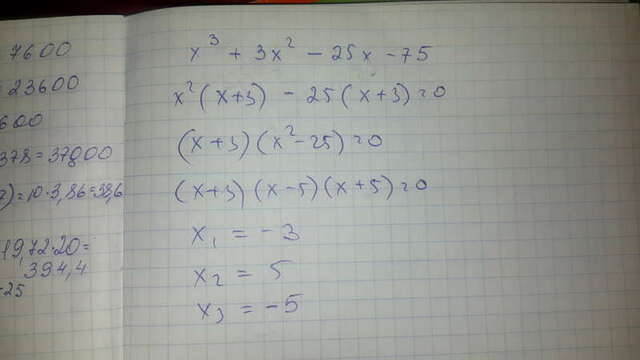 7600
23600
600
378=37800
7)=10·3,86=38,6
19,72·20=
394,4
-25
x³ + 3x² - 25x - 75
x²(x+3) - 25(x+3)=0
(x+3)(x²-25)=0
(x+3)(x-5)(x+5)=0
x₁ = -3
x₂ = 5
x₃ = -5